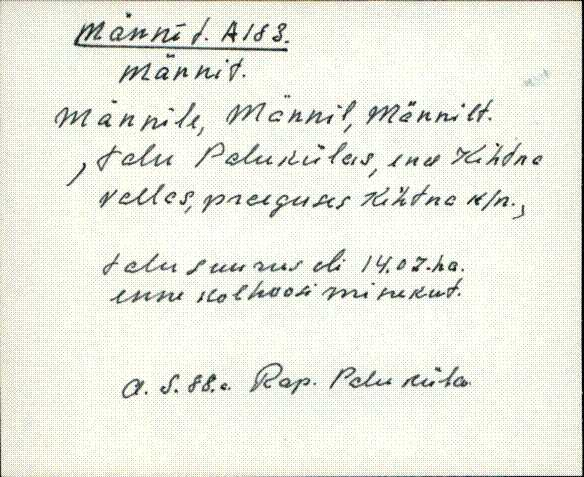 Männi t. A183.
Männit.
Männile, Männil, Männilt.
, talu Palukülas, end Kihtna
vallas, praeguses Kihtna k/n.,
talu suurus oli 14.07.ha.
enne kolhoosi minekut.
A. S. 88.a. Rap. Paluküla